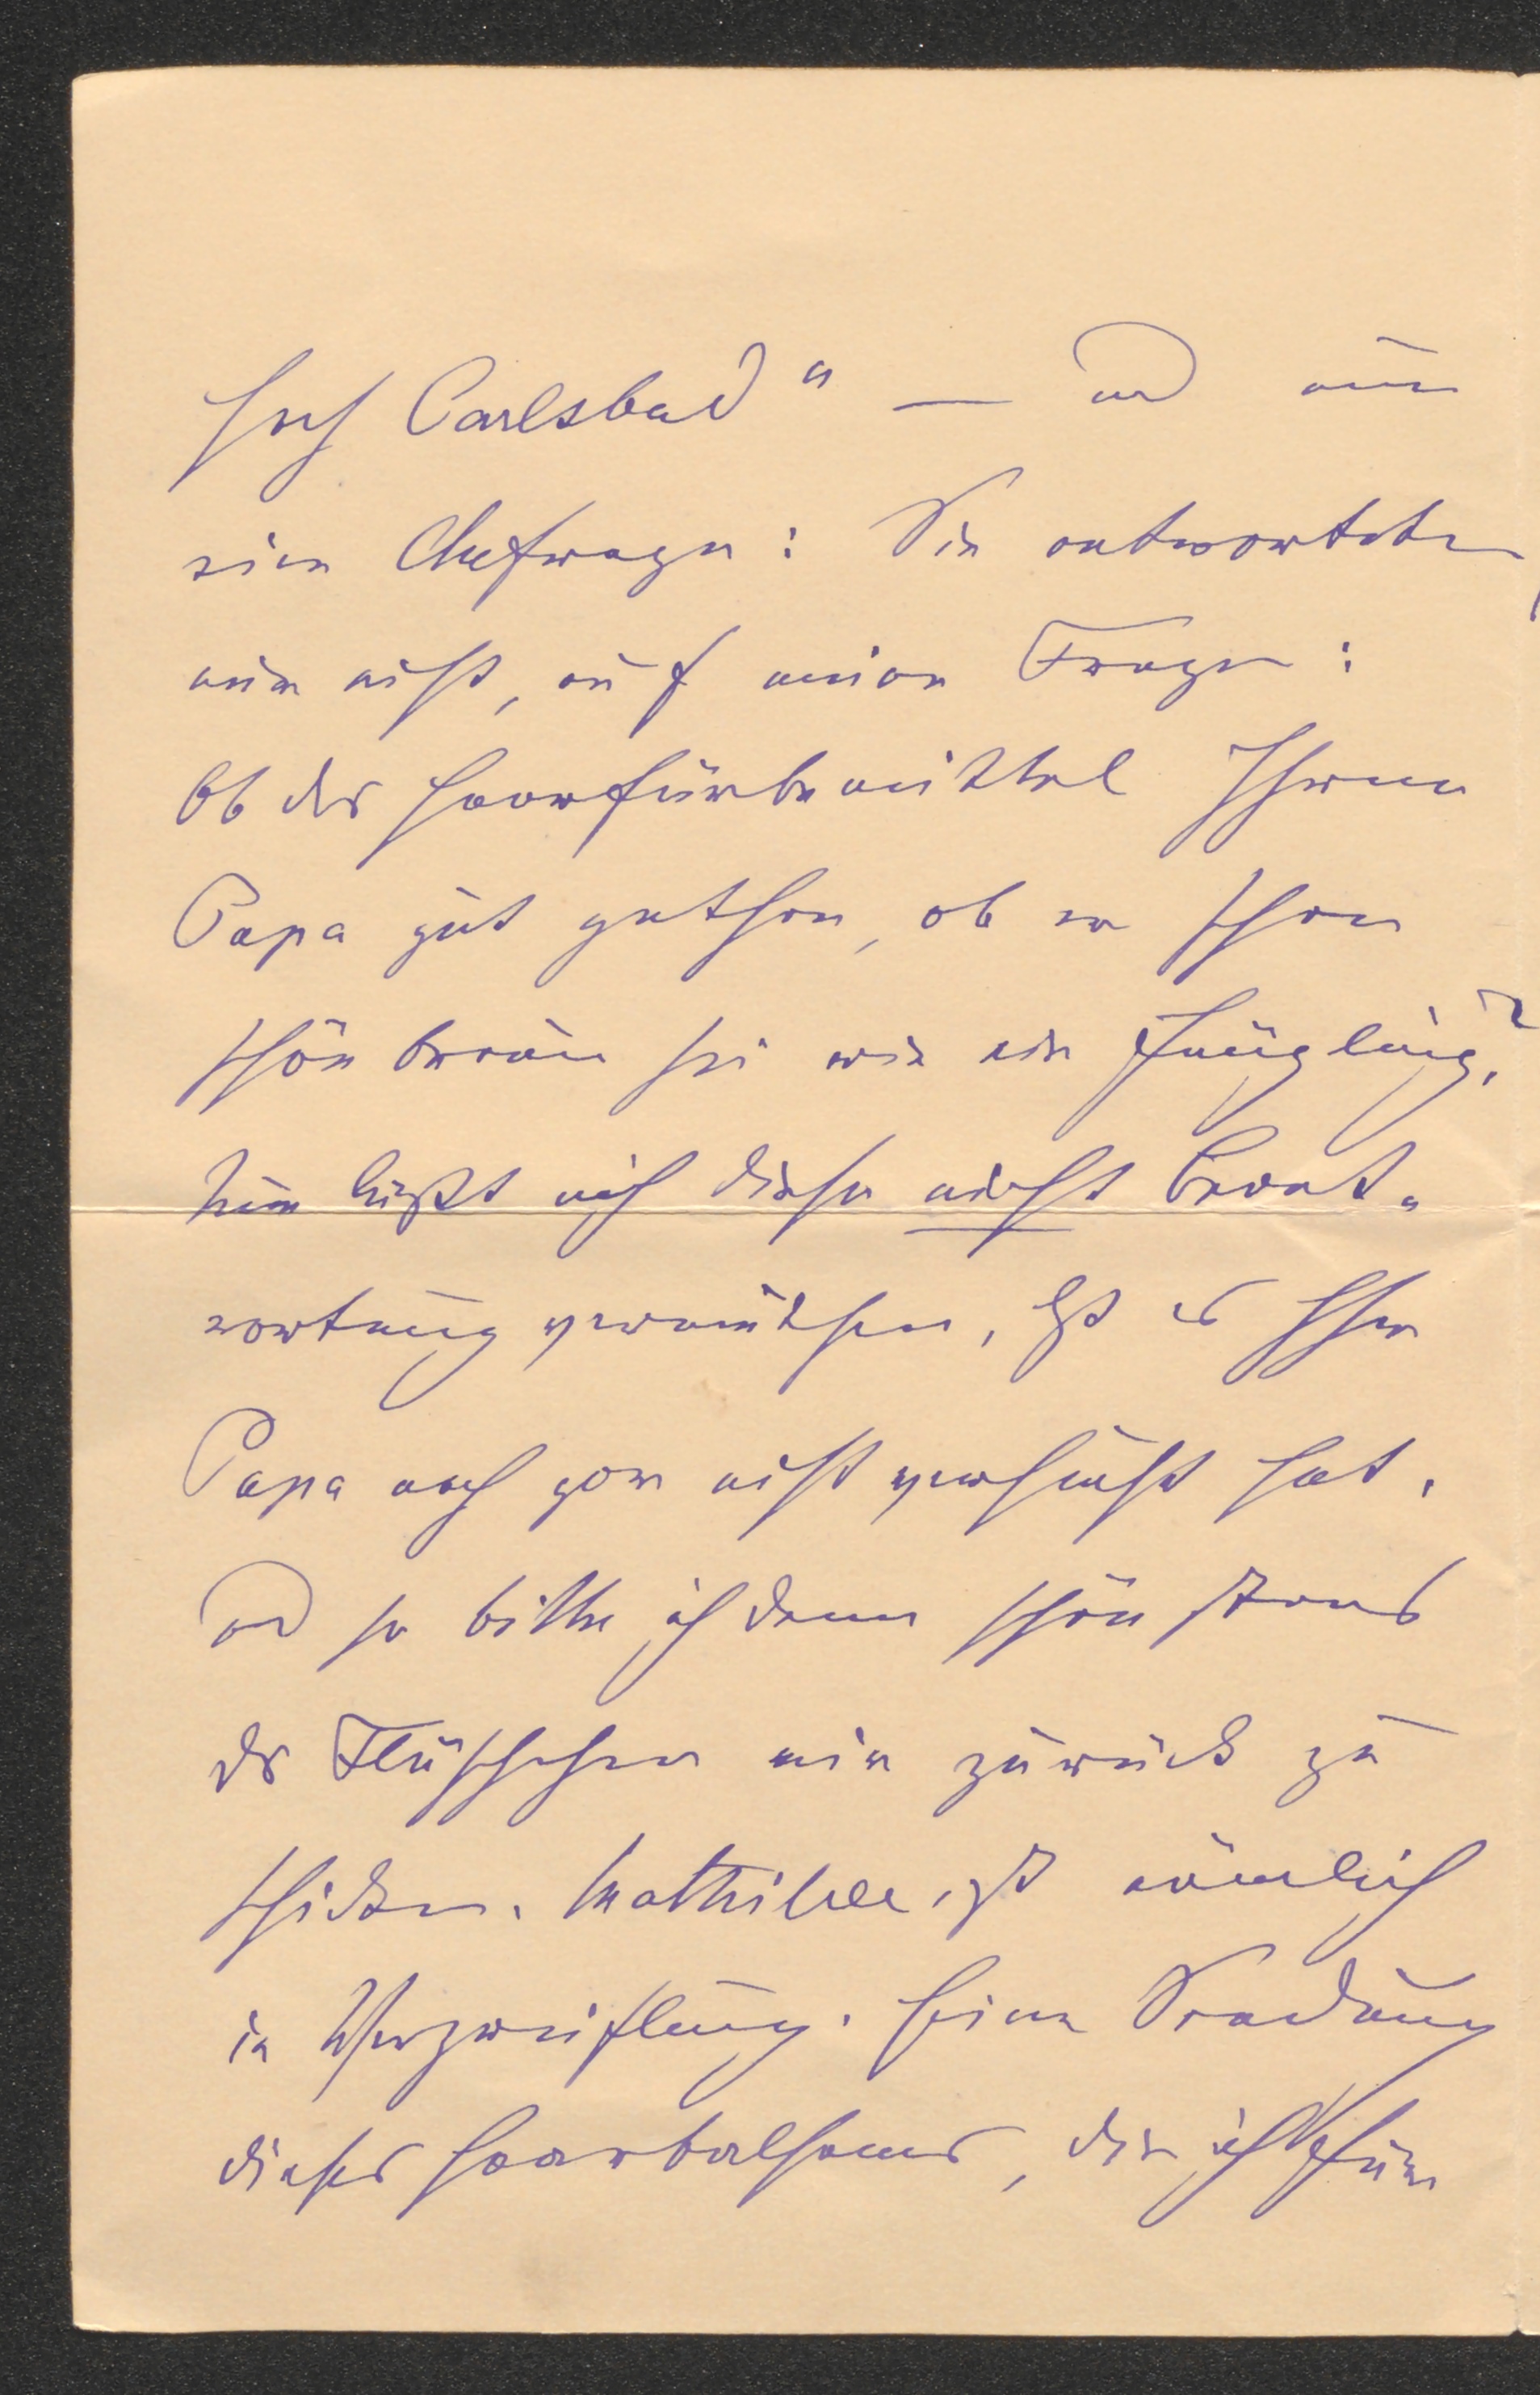 hoch Carlsbad“ — und nun
eine Chefrage: Sie antworteten
mir nicht, auf meine Frage:
Ob das Haarfärbemittel Ihrem
Papa gut gethan, ob er schon
schön braun sei wie ein Jüngling?
Nun läßt mich diese nicht Beant-
wortung vermuthen, daß es Ihr
Papa noch gar nicht versucht hat,
und so bitte ich denn schönstens
das Fläschchen mir zurück zu
schicken. Mathilde ist nämlich
in Verzweiflung. Eine Sendung
dieses Haarbalsams, die ich für